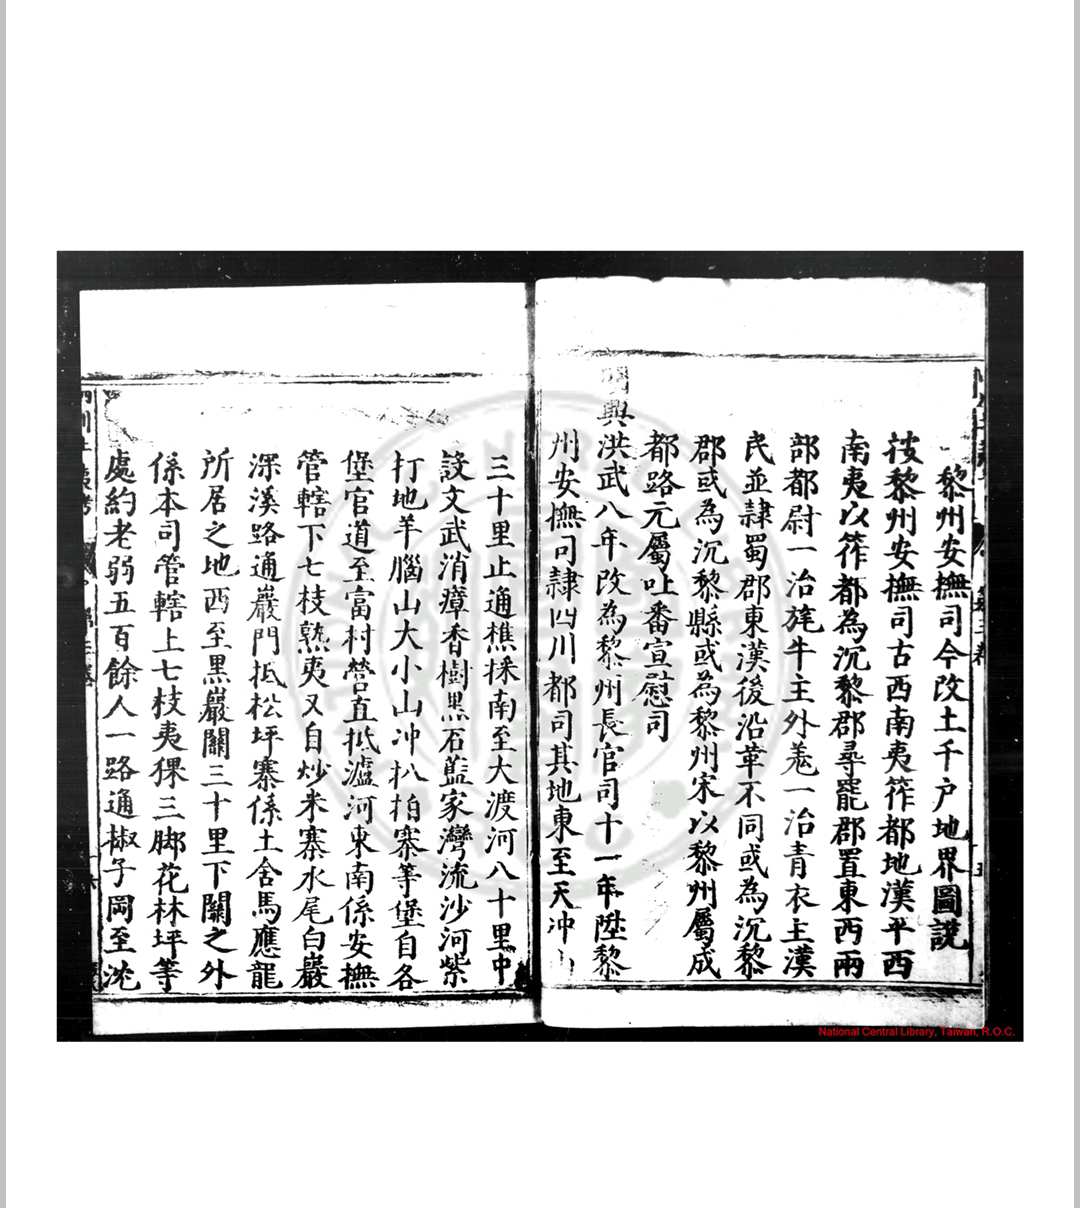 黎州安撫司今改土千户地界圖説
按黎州安撫司古西南夷筰都地漢平西
南夷以筰都為沉黎郡尋罷郡置東西兩
部都尉一治旄牛主外羗一治青衣主漢
民並隷蜀郡東漢後沿革不同或為沉黎
郡或為沉黎縣或為黎州宋以黎州屬成
都路元屬吐番宣慰司
興洪武八年改為黎州長官司十一年陞黎
州安撫司隷四川都司其地東至天冲山
三十里止通樵採南至大渡河八十里中
設文武消瘴香樹黒石藍家灣流沙河紫
打地羊腦山大小山冲朳栢寨等堡自各
堡官道至富村營直抵瀘河東南係安撫
管轄下七枝熟夷又自炒米寨水尾白巖
深溪路通巖門抵松坪寨係土舍馬應龍
所居之地西至黒巖關三十里下關之外
係本司管轄上七枝夷猓三脚花林坪等
處約老弱五百餘人一路通椒子岡至沈
National Central Library, Taiwan, R.O.C.